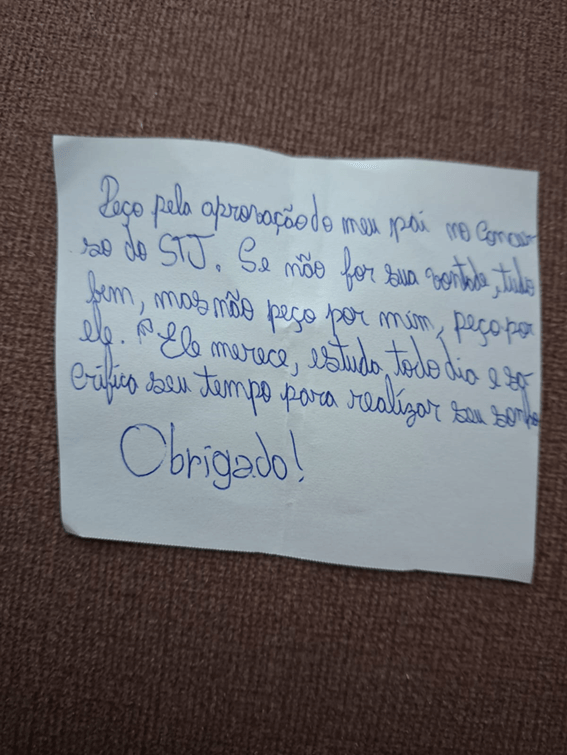 Peço pela aprovação do meu pai no concur
so do STJ. Se não for sua vontade, tudo
bem, mas não peço por mim, peço por
ele. Ele merece, estuda todo dia e sa
crifica seu tempo para realizar seu sonho
Obrigado!